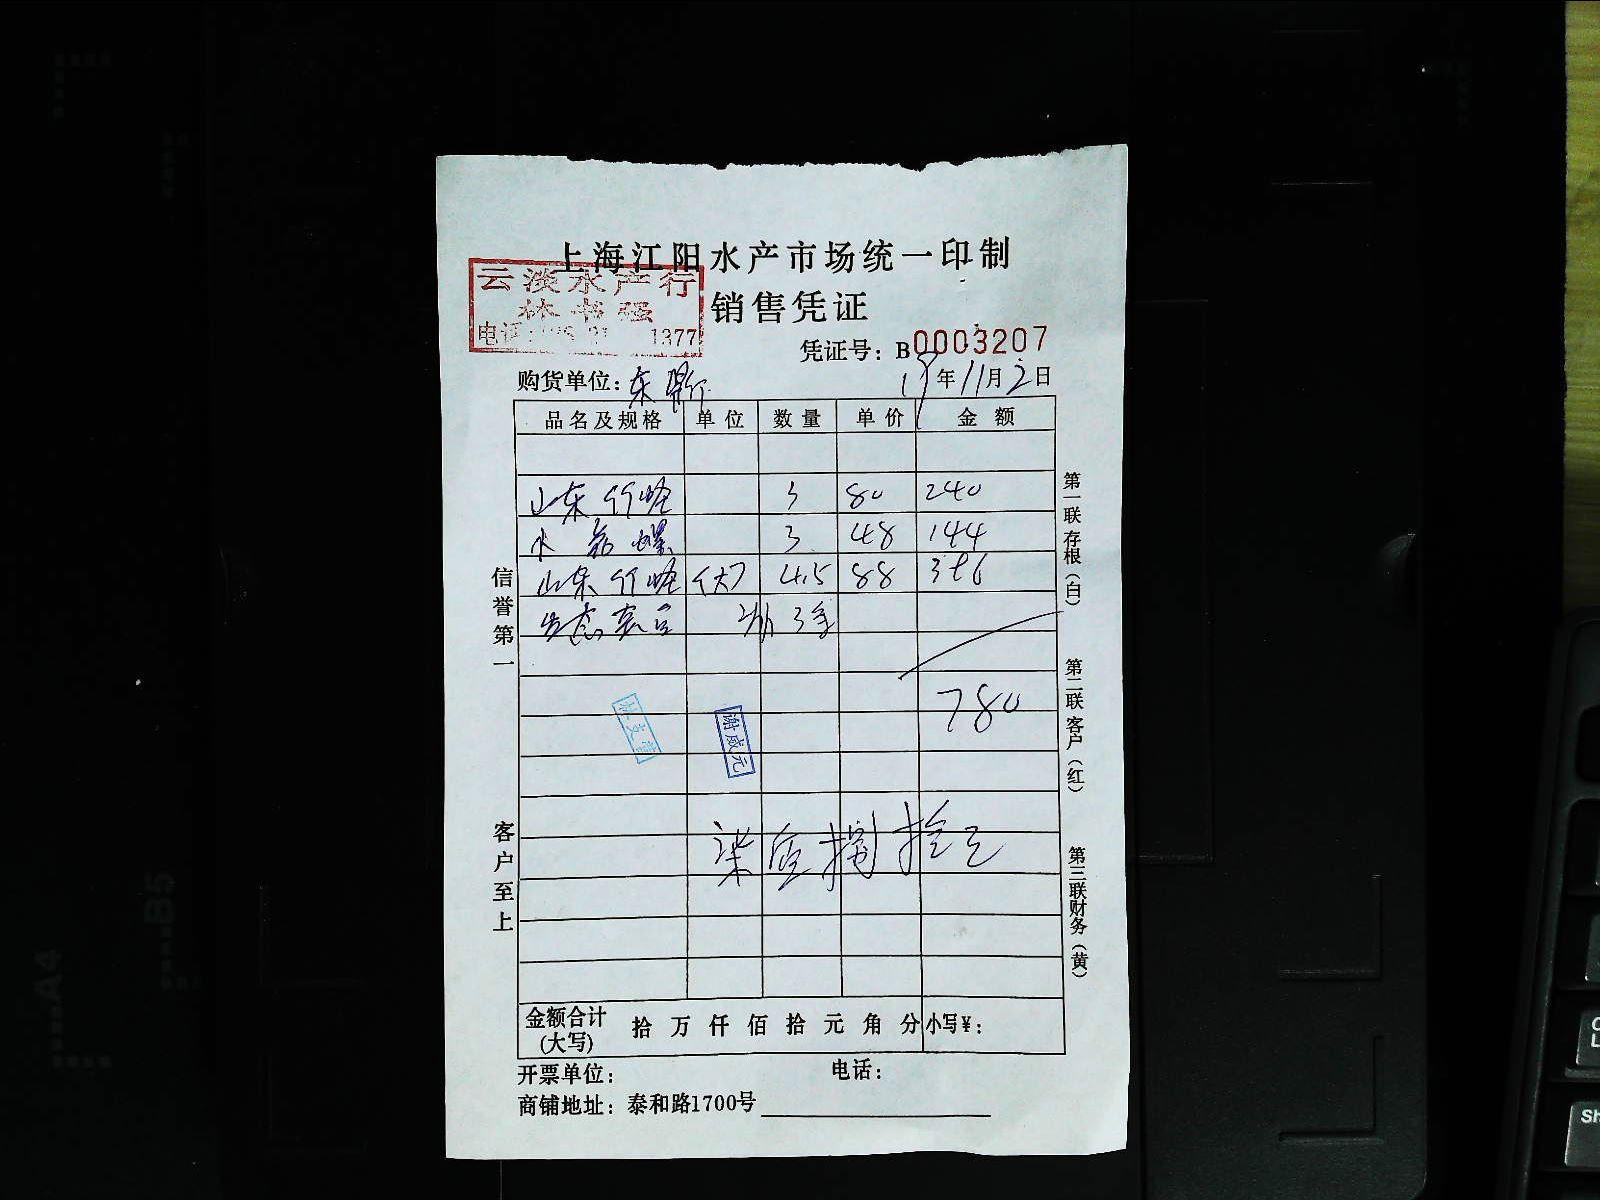 上海江阳水产市场统一印制
云淡水产行
林书强
电话: 1377
销售凭证
凭证号：B0003207
购货单位：东 19年11月2日
品名及规格 单位 数量 单价 金额
山东竹蛏 3 80 240
水 螺 3 48 144
山东竹蛏 (大) 4.5 88 396
生态
780
柒佰捌拾元
谢威元
信誉第一
客户至上
第一联存根（白）
第二联客户（红）
第三联财务（黄）
金额合计（大写） 拾 万 仟 佰 拾 元 角 分 小写¥：
开票单位： 电话：
商铺地址：泰和路1700号
A4
B5